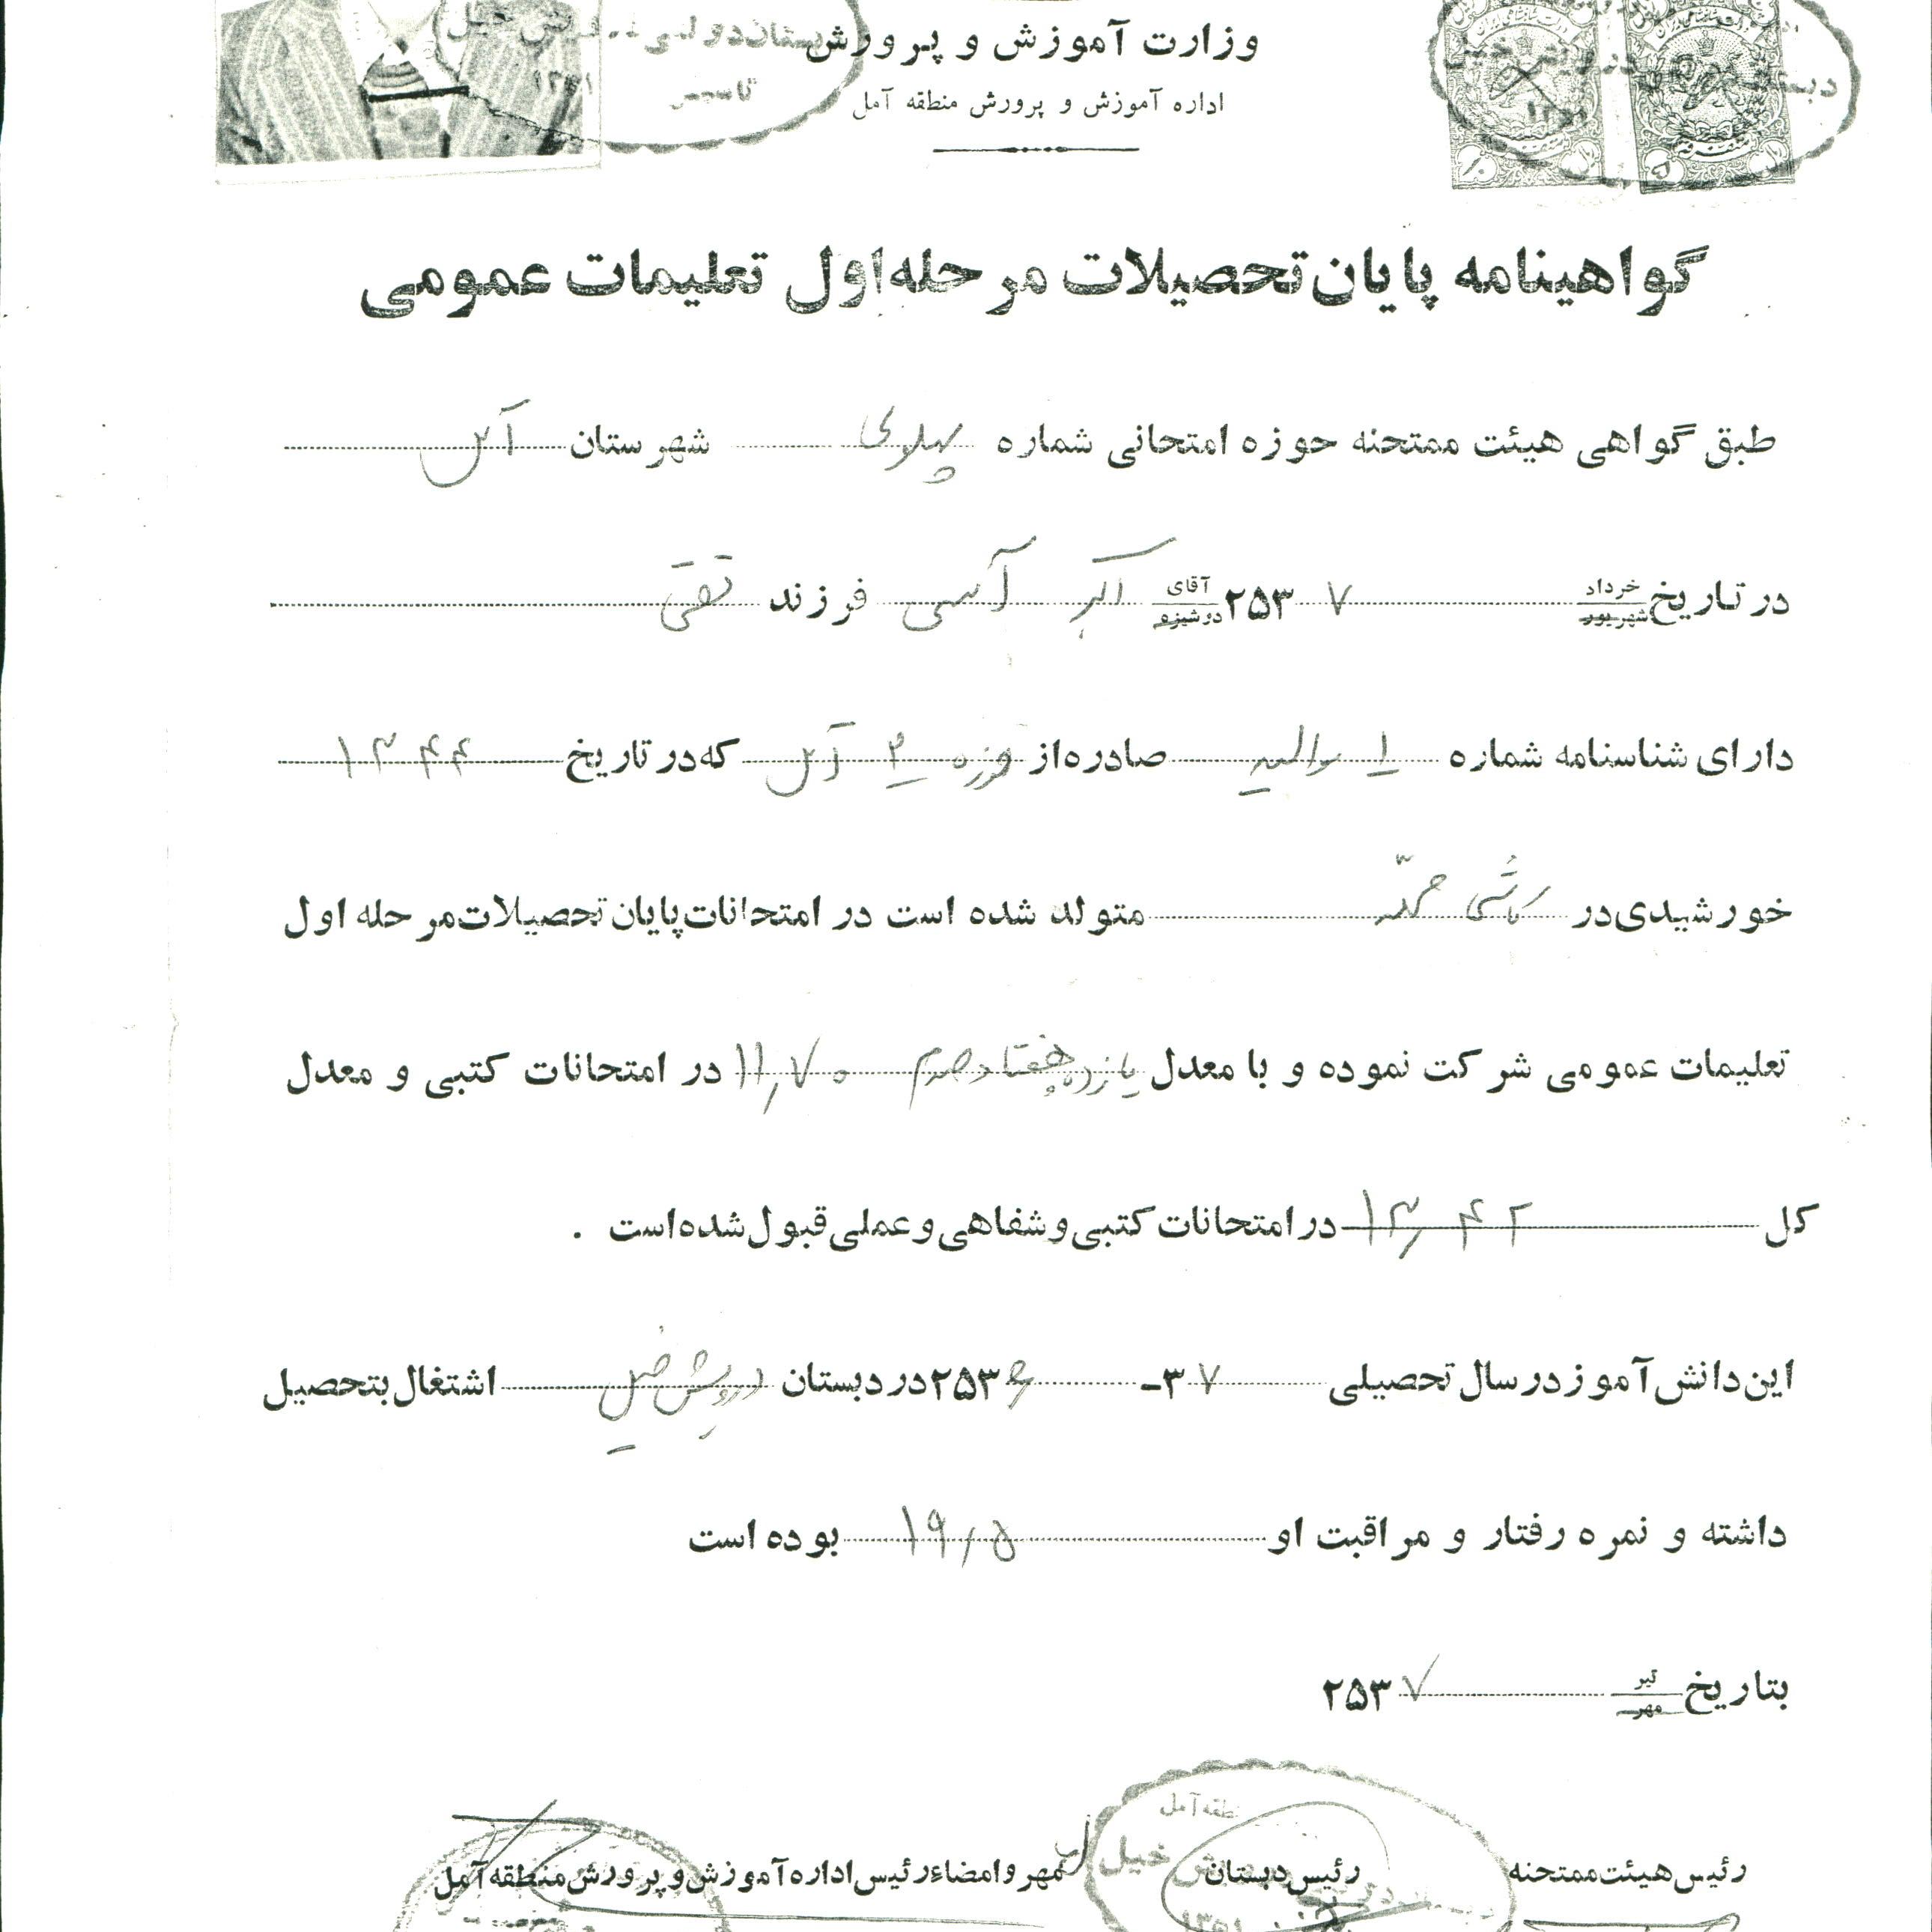 وزارت آموزش و پرورش
اداره آموزش و پرورش منطقه آمل
گواهینامه پایان تحصیلات مرحله اول تعلیمات عمومی
طبق گواهی هیئت ممتحنه حوزه امتحانی شماره پهلوی شهرستان آمل
در تاریخ خرداد شهریور ۲۵۳۷ آقای دوشیزه اکبر آسی فرزند تقی
دارای شناسنامه شماره ۱ صادره از حوزه ۳ آمل که در تاریخ ۱۳۴۴
خورشیدی در کاشی محله متولد شده است در امتحانات پایان تحصیلات مرحله اول
تعلیمات عمومی شرکت نموده و با معدل یازده هفتاد صدم ۱۱,۷۰ در امتحانات کتبی و معدل
کل ۱۳,۴۲ در امتحانات کتبی و شفاهی و عملی قبول شده است .
این دانش آموز در سال تحصیلی ۳۷-۲۵۳۶ در دبستان درویش خیل اشتغال بتحصیل
داشته و نمره رفتار و مراقبت او ۱۹,۵ بوده است
بتاریخ تیر مهر ۲۵۳۷
رئیس هیئت ممتحنه رئیس دبستان مهر و امضاء رئیس اداره آموزش و پرورش منطقه آمل